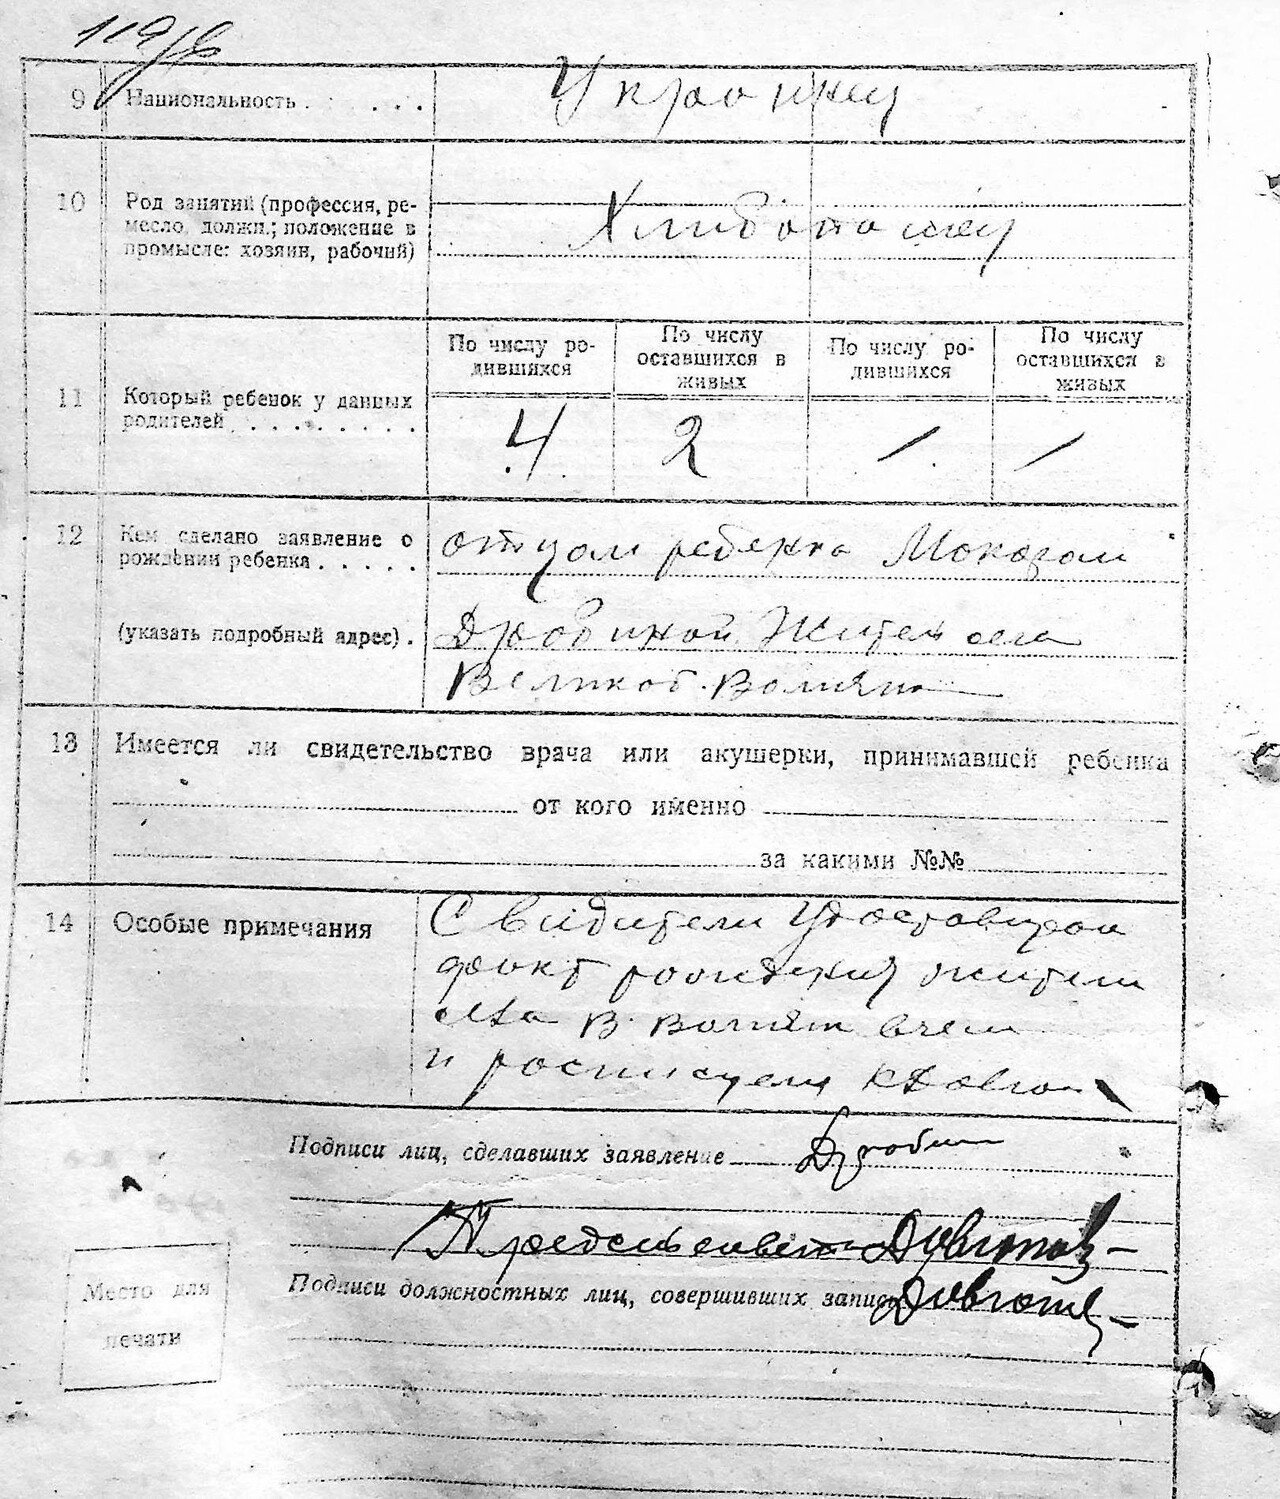 119/8
9 Национальность . . . . . . Украинец
10 Род занятий (профессия, ре-
месло, должн.; положение в
промысле: хозяин, рабочий)
Хлибопашец
По числу ро-
дившихся
По числу
оставшихся в
живых
По числу ро-
дившихся
По числу
оставшихся в
живых
11 Который ребенок у данных
родителей . . . . . . . . .
4 2 / /
12 Кем сделано заявление о
рождении ребенка . . . . .
отцом ребенка Макаром
(указать подробный адрес) . Дробиной Жител села
Великоб. Волняш
13 Имеется ли свидетельство врача или акушерки, принимавшей ребенка
от кого именно
за какими №№
14 Особые примечания
Свидители
факт рождения жители
села В.
и
Подписи лиц, сделавших заявление Дробин
Предсельсовета
Подписи должностных лиц, совершивших запись
Место для
печати